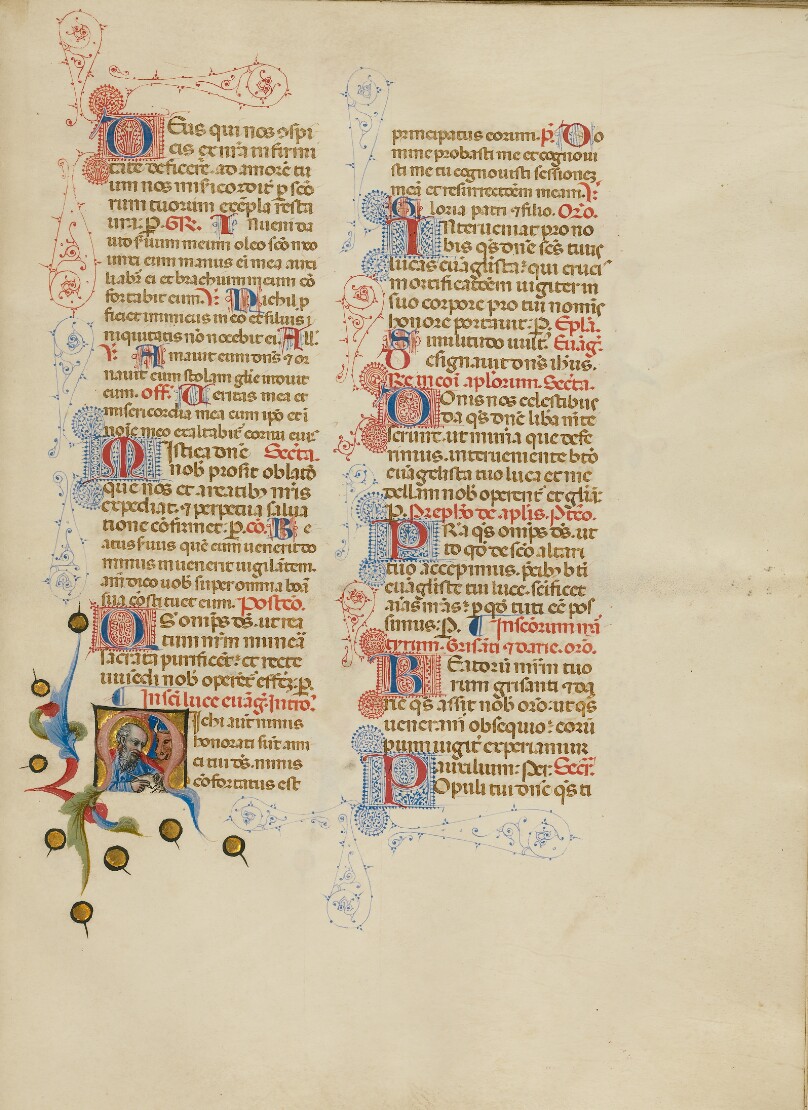 Deus qui nos 9spi
cis ex nr̃a infirmi
tate deficere. ad amorē tu
um nos misericordit̃ p scō
rum tuorum exēpla resta
ura. P. GR. Inueni da
uid seruum meum oleo scō meo
unxi eum manus ei mea auxi
liabr̃ ei et brachium meum cō
fortabit eum. V Nichil p
ficiet inimicus in eo et filius
iniquitatis nō nocebit ei. All.
V Amauit eum dñs ⁊ or
nauit eum stolam glīe induit
eum. off. Ueritas mea et
misericordia mea cum ipō et ī
noīe meo exaltabit̃ cornu eius
Mistica dñe Secr̃ta.
nob prosit oblatō
que nos et a reatib9 nr̃is
expediat. ⁊ perpetua salua
tione cōfirmet. P. cō. Be
atus seruus quē cum uenerit do
minus inuenerit uigilātem.
am̃ dico uob super omnia bōa
sua cōstituet eum. Postcō.
Qs om̃ps ds. ut rea
tum nr̃m munerū
sacratā purificet et recte
uiuēdi nob operet̃ effēz. P.
In sc̃i luce euāg̃. Intro.
Michi aut̃ nimis
honorati sūt ami
ci tui ds. nimis
cōfortatus est
principatus eorum. P. Do
mine probasti me et cognoui
sti me tu cognouisti sessionez
meā et resurrectōem meam. V
Gloria patri ⁊ filio. Oro.
Interueniat pro no
bis qs dñe sc̃s tuus
lucas euāglista qui cruci9
mortificatōem iugiter in
suo corpore pro tui nomīs
honore portauit. P. Epl̃a.
Similitudo uult9. Euāg̃.
Designauit dñs ihus.
Re in coī aplorum. Secr̃ta.
Donis nos celestibus
da qs dñe libā mēte
seruire. ut munīa que defe
rimus. interueniente btō
euāgelista tuo luca et me
dellam nob operent̃ et gl̃iā.
P. Prepho de aplis. Ptcō.
Pr̃a qs omips ds. ut
id qd̃ de scō altari
tuo accepimus. pcib9 bt̃i
euāgliste tui luce. sc̃ificet
aīas nr̃as p qd̃ tuti eē pos
simus. P. In sc̃orum mr̃
tyrum. Grisāti ⁊ darie. oro.
Beatorū mr̃m tuo
rum grisanti ⁊ da
rie qs assit nob oro. ut qs
ueneram̃ obsequio. eorū
pium iugit̃ experiamur
auxilium. Per. Secr̃.
Populi tui dñe qs ti